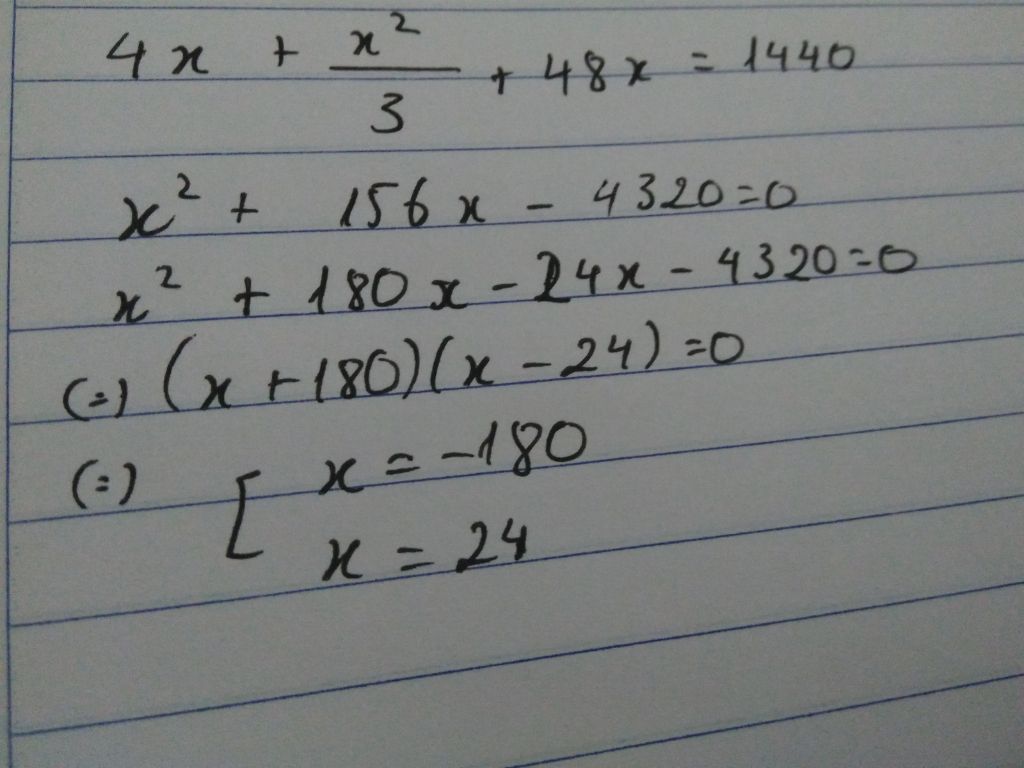 4x + x²/3 + 48x = 1440
x² + 156x - 4320=0
x² + 180x - 24x - 4320=0
(=) (x + 180)(x - 24) =0
(=) [ x = -180
x = 24